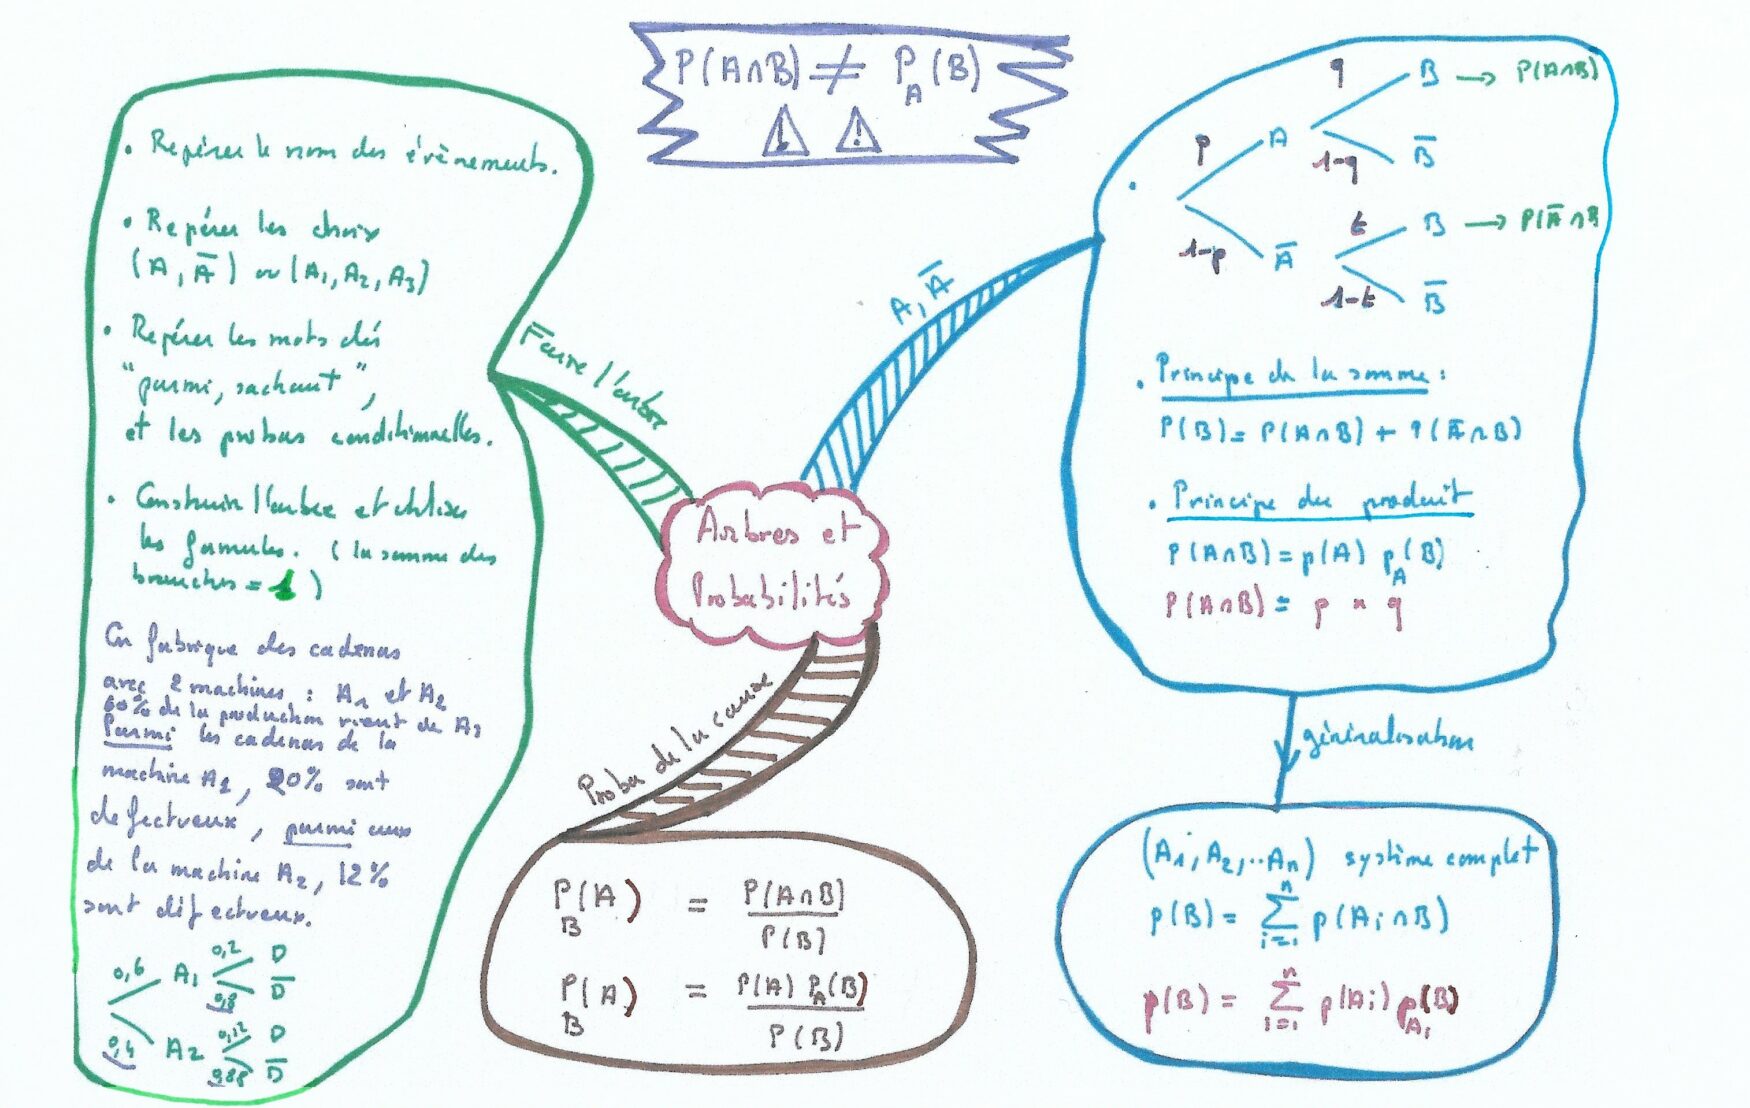 P(A∩B) ≠ P_A(B)
• Repérer le nom des évènements.
• Repérer les choix
(A, A̅) ou (A₁, A₂, A₃)
• Repérer les mots clés
"parmi, sachant",
et les probas conditionnelles.
• Construire l'arbre et utiliser
les formules. (la somme des
branches = 1)
On fabrique des cadenas
avec 2 machines : A₁ et A₂
60% de la production vient de A₁
Parmi les cadenas de la
machine A₁, 20% sont
defectueux, parmi ceux
de la machine A₂, 12%
sont défectueux.
0,6 A₁ 0,2 D
0,8 D̅
0,4 A₂ 0,12 D
0,88 D̅
Faire l'arbre
Arbres et
Probabilités
A, A̅
p A q B → P(A∩B)
1-q B̅
1-p A̅ t B → P(A̅∩B)
1-t B̅
• Principe de la somme :
P(B) = P(A∩B) + P(A̅∩B)
• Principe du produit
P(A∩B) = p(A) p_A(B)
P(A∩B) = p × q
généralisation
(A₁, A₂, ..Aₙ) système complet
p(B) = ∑_{i=1}^{n} p(Aᵢ∩B)
p(B) = ∑_{i=1}^{n} p(Aᵢ) p_{Aᵢ}(B)
Proba de la cause
P_B(A) = P(A∩B) / P(B)
P_B(A) = P(A) P_A(B) / P(B)